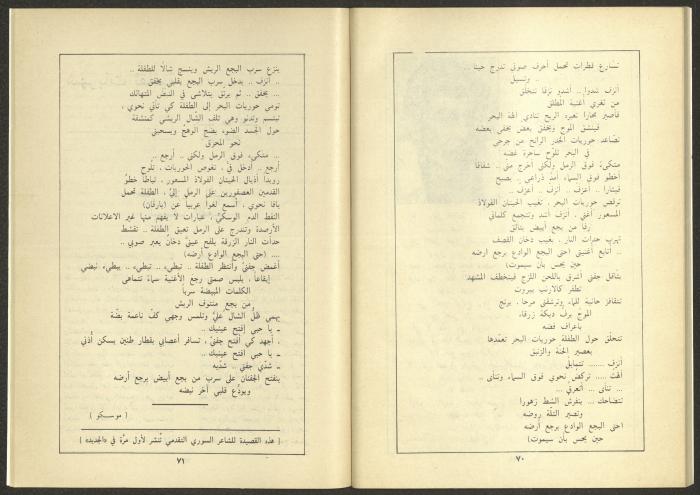 تسارع قطرات تحمل أحرف صوتي تدرج حينا ..
.. وتسيل
أنزف شدوا .. أشدو نزفا تتخلق
من ثغري أغنية المطلق
فأصير محارا تعبره الريح تنادي آلهة البحر
فينشق الموج ويخفق بعض يخفي بعضه
تصاعد حوريات الجزر الرائح من جرحي
في البحر تلوح ساحرة غضه
متكىء فوق الرمل ولكني أخرج مني .. شفافا
أخطو فوق السماء أمد ذراعي .. يصبح
قيثارا .. أعزف .. أنزف .. أعزف ..
ترقص حوريات البحر ، تغيب الحيتان الفولاذ
المسعور أغني ، أنزف أشد وتتجمع كلماتي
رفا من بجع أبيض يتألق
تهرب حدآت النار ، يغيب دخان القصف
.. أتابع أغنيتي (حتى البجع الوادع يرجع أرضه
حين يحس بأن سيموت)
يثاقل جفني أشرق باللحن اللزج فيخطف المشهد
تظفر كالأرنب بيروت
تتقافز حانية للماء وترشقني مرحا ، برتج
الموج برف ديكة زرقاء
بأعراف فضه
تتحلق حول الطفلة حوريات البحر تعمدها
بعصير الحنة والزنبق
أنزف ....... تتمايل
ألهث ..... تركض نحوي فوق السماء وتناى
.. تناى .. أتعرق ...
تتضاحك ... ينفرش الشط زهورا
وتصير التلة روضه
(حتى البجع الوادع يرجع أرضه
حين يحس بأن سيموت)
٧٠
ينزع سرب البجع الريش وينسج شالا للطفلة ..
.. أنزف .. يدخل سرب البجع بقلبي يخفق
... يخفق .. ثم يرنق يتلاشى في النبض المتهالك
تومي حوريات البحر إلى الطفلة كي تأتي نحوي ،
تبتسم وتدنو وهي تلف الشال الريشي كمنشفة
حول الجسد الضوء يضج الوهج ويسحبني
نحو المحرق
.. متكىء فوق الرمل ولكني .. أرجع ..
أرجع .. أدخل في ، تغوص الحوريات ، تلوح
رويدا أذيال الحيتان الفولاذ المسعور ، تباطأ خطو
القدمين العصفورين على الرمل إلي ، الطفلة تحمل
باقا نحوي ، أسمع لغوا عربيا عن (بارقان)
النفط الدم الوسكي ، عبارات لا يفهم منها غير الاعلانات
الأرصدة وتتدرج على الرمل تعيق الطفلة .. تقشط
حدآت النار الزرقة يلفح عيني دخان يعبر صوتي ..
.... (حتى البجع الوادع أرضه)
أغمض جفني وأنتظر الطفلة .. تبطىء .. تبطىء .. يبطىء نبضي
إيقاعا ، يلبس صمتي رجع الأغنية سيالا تتماهى
الكلمات المبيضة سربا
من بجع منتوف الريش
يهمي ظل الشال علي وتلمس وجهي كف ناعمة بضة
ـ يا حبي إفتح عينيك ..
، أجهد كي أفتح جفني ، تسافر أعصابي بقطار طنين يسكن أذني
ـ يا حبي افتح عينيك ..
ـ شدي جفني .. شديه
ينفتح الجفنان على سرب من بجع أبيض يرجع أرضه
ويودع قلبي آخر نبضه
( موسكو )
( هذه القصيدة للشاعر السوري التقدمي تنشر لأول مرة في «الجديد» )
٧١